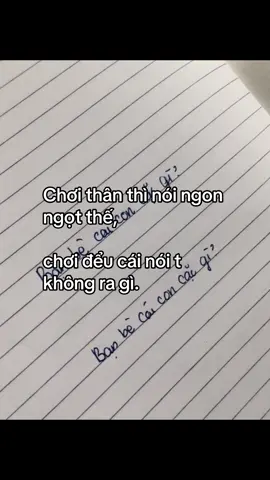 Chơi thân thì nói ngon
ngọt thế,
chơi đểu cái nói t
không ra gì.
Bạn bè cái con cặc gì
Bạn bè cái con cặc gì